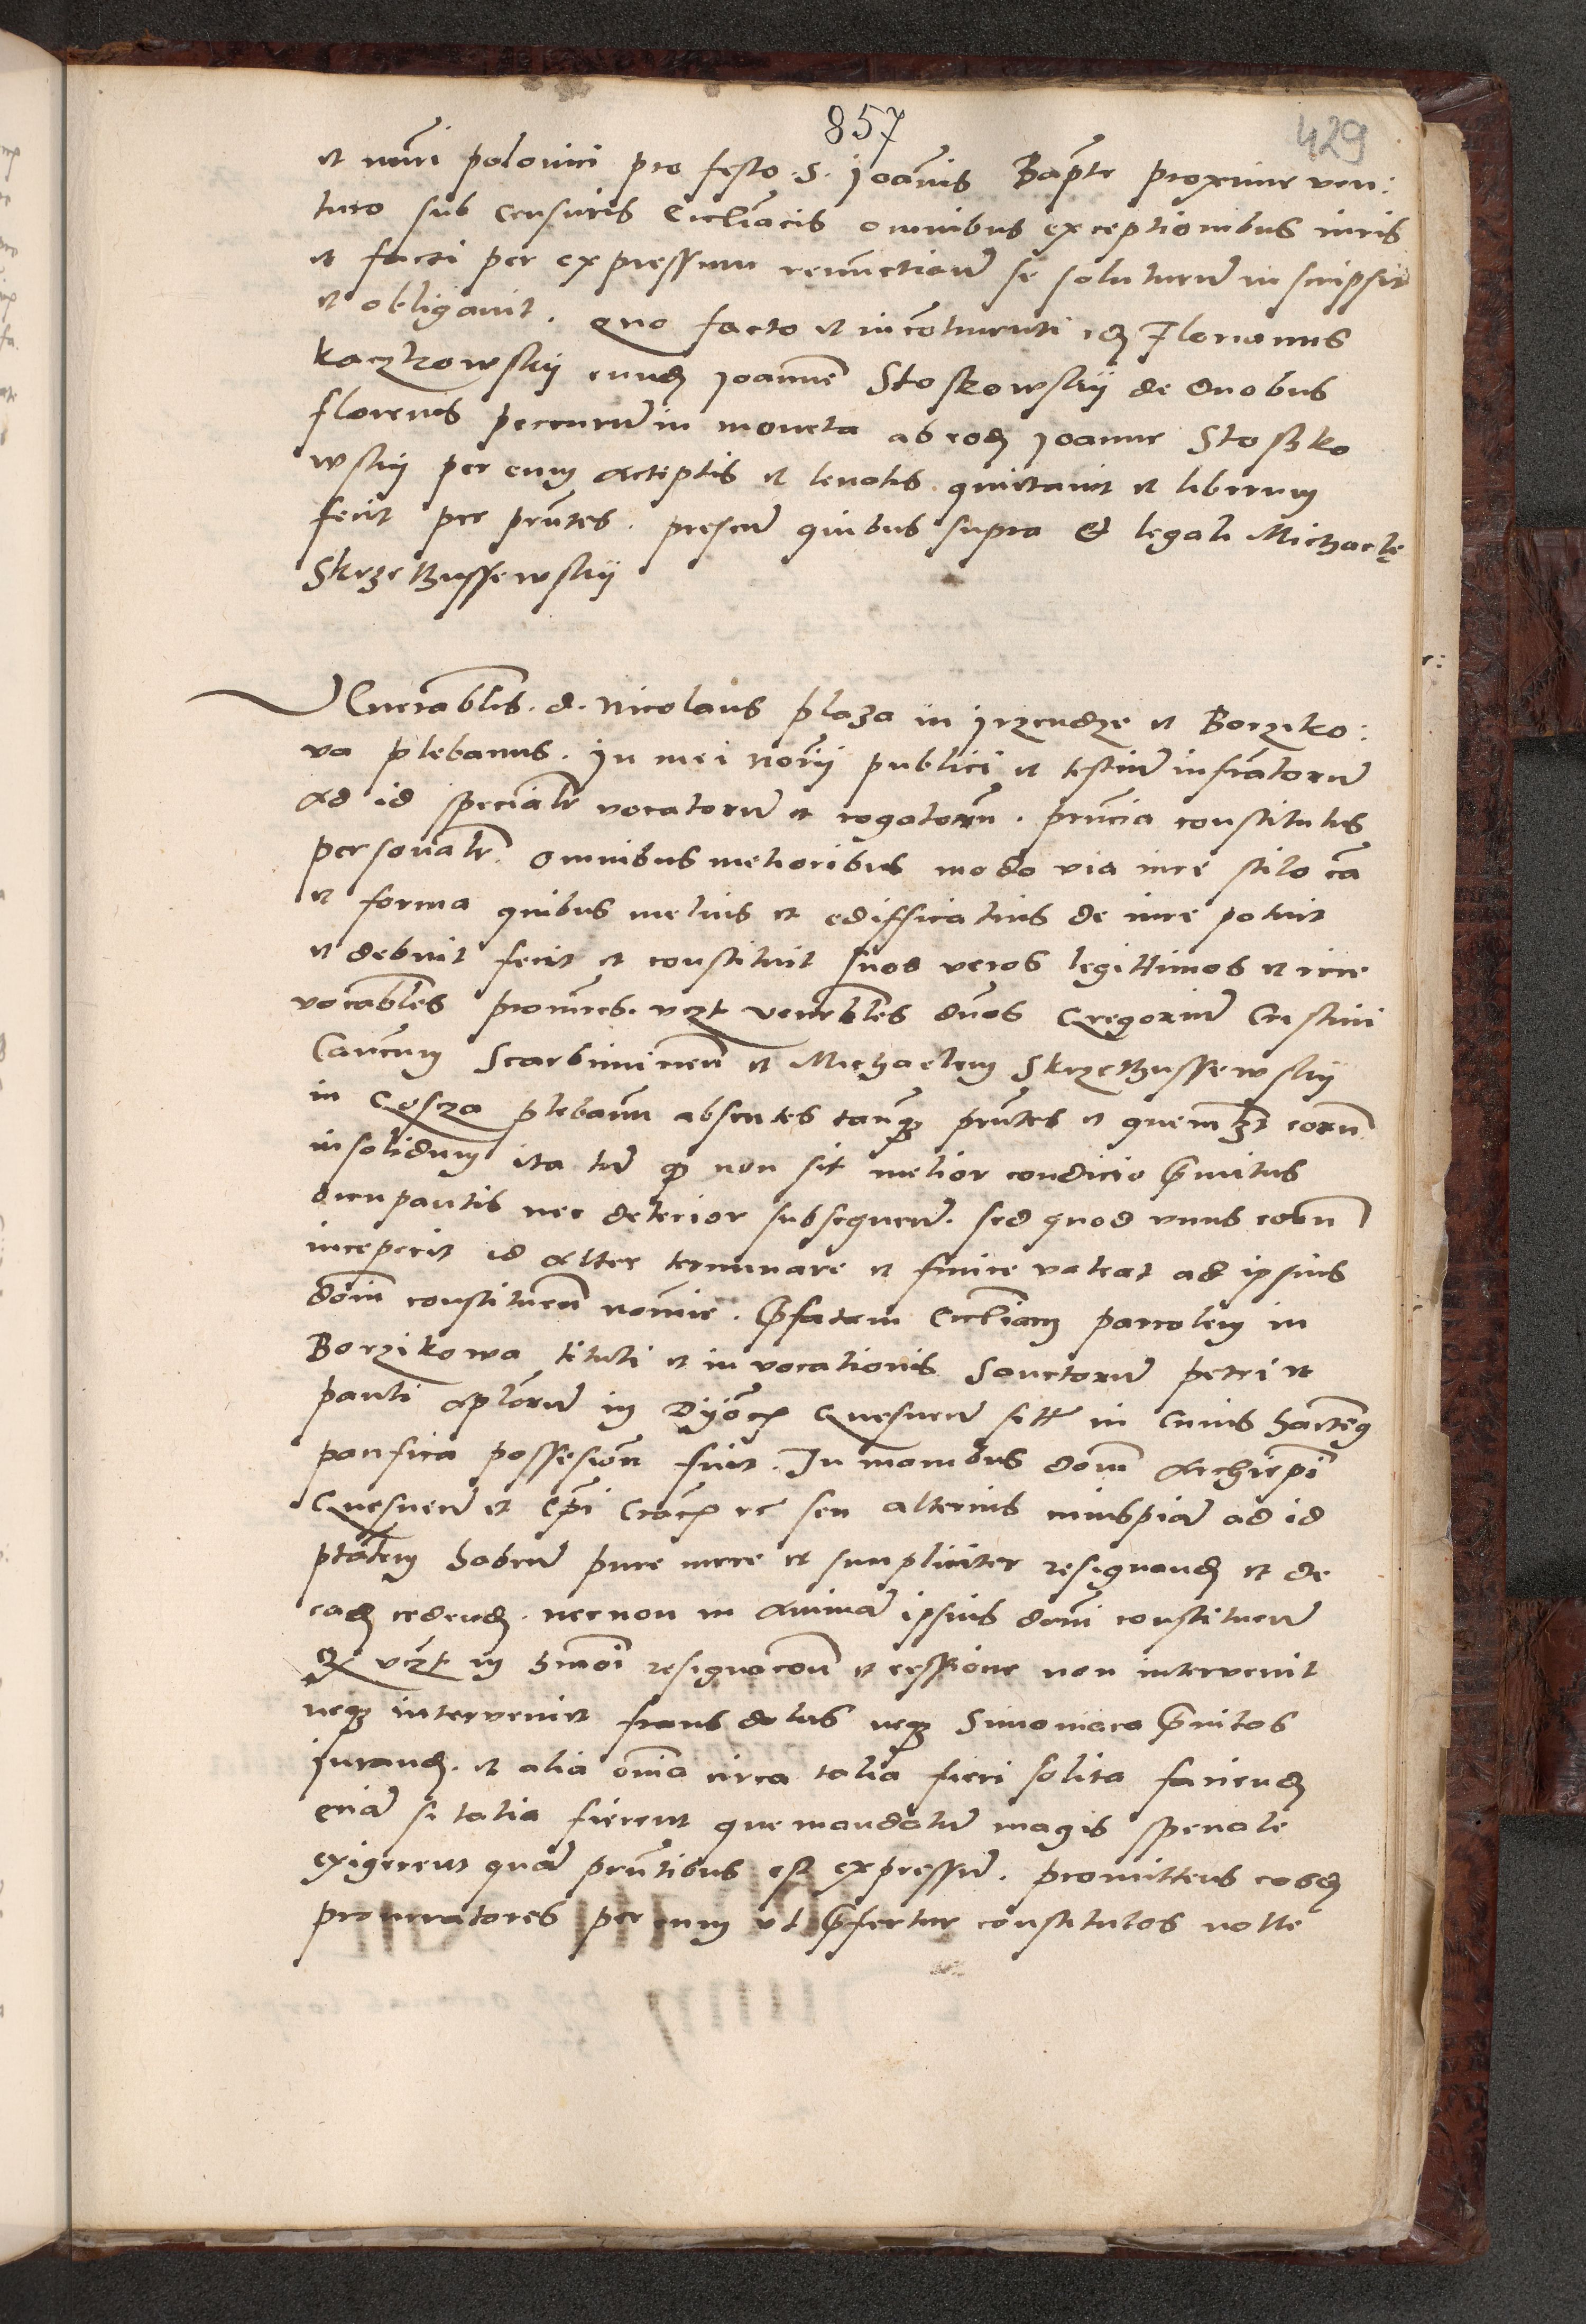 857
429
et nūri polonici pro festo .S. Joānis Bapte proxime ven:
turo sub censuris Eccliācis omnibus exceptionibus iuris
et facti per expressum renūctiatū se soluturū inscripsit
et obligavit. Quo facto et incōtinenti idē Florianus
Kaczkowskij eundē Joannē Stoskowskij de duobus
florenis pecuniarū in moneta ab eodē Joanne Stoszko
wskij per eum acceptis et levatis quietavit et liberum
fecit per prntes. presentū quibus supra & legali Michaelę
Skrzethussewskij
Venerabilis .d. Nicolaus Plaza in Jrzendze et Borziko:
va plebanus. In mei norij publici et testiū infrātorū
ad id specialr vocatorū et rogatorū. prncia constitutus
personalr. omnibus melioribus modo via iure stilo cā
et forma quibus melius et edifficatius de iure potuit
et debuit fecit et constituit suos veros legittimos et irre
vocabiles procures. vczt venebles dnos Gregoriū Cristini
Canonicum Scarbimirien et Michaelem Skrzethussewskij
in Cosza plebanū absentes tanq̄ prntes et quemlzt eorū
insolidum ita tn q non sit melior condicio p̄mitus
occupantis nec deterior subsequen. sed quod unus eorū
inceperit id alter terminare et finire valeat ad ipsius
domi constituen nomine. p̄fatam Eccliam parrolem in
Borzikowa tituli et invocationis Sanctorū Petri et
Pauli aplorū in Dyoc̄ Gnesnen sitt in cuius hactenq
pacifica possesione fuit. In manibus domi Archiepi
Gnesnen et Epi Crac̄ rc seu alterius cuiuspiā ad id
ptatem haben pure mere et simpliciter resignand et de
eadē cedend. necnon in animā ipsius domi constituen
Q vczt in hmoi resignacone et cessione non intervenit
neq̄ interveniet fraus dolus neq̄ Simoniaca p̄vitas
jurand. et alia omia circa talia fieri solita faciend
etiā si talia fierent que mandatū magis speciale
exigerent quā prntibus est expressū. promittens eosdē
procuratores per eum ut p̄fertur constitutos nolle